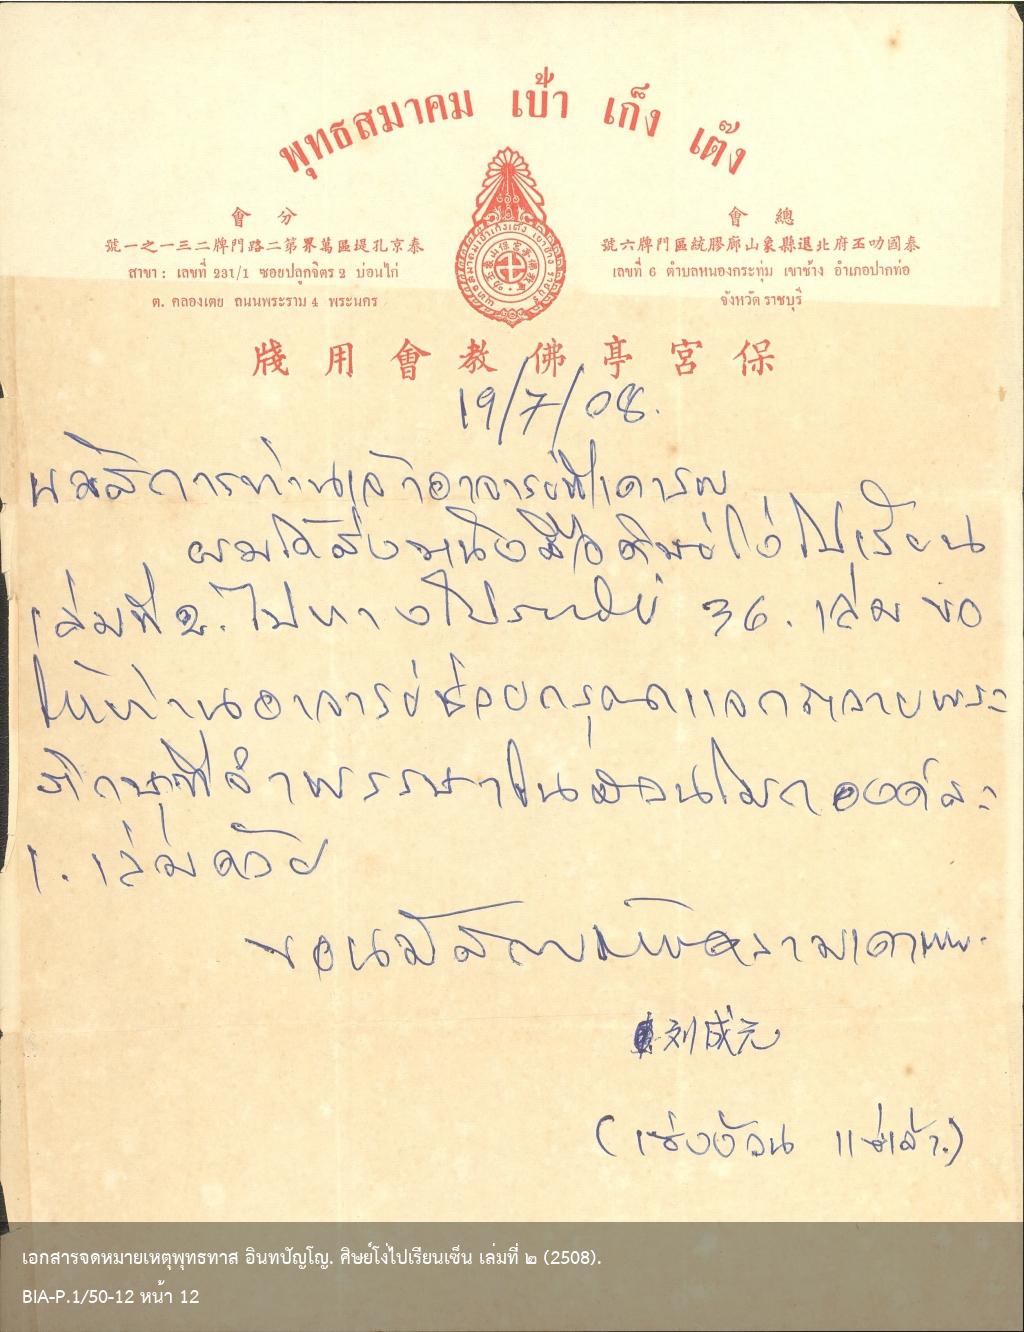 พุทธสมาคม เป้า เก็ง เต๊ง
會 分
號一之一三二牌門路二第界萬區堤孔京泰
สาขา: เลขที่ 231/1 ซอยปลูกจิตร 2 บ่อนไก่
ต. คลองเตย ถนนพระราม 4 พระนคร
會 總
號六牌門區統膠廊山象縣退北府丕叻國泰
เลขที่ 6 ตำบลหนองกระทุ่ม เขาช้าง อำเภอปากท่อ
จังหวัด ราชบุรี
牋 用 會 教 佛 亭 宮 保
19/7/08.
นมัสการท่านเจ้าอาจารย์ที่เคารพ
ผมได้ส่งหนังสือศิษย์โง่ไปเรียน
เล่มที่ 2. ไปทางไปรษณีย์ 36. เล่ม ขอ
ให้ท่านอาจารย์ช่วยกรุณาแจกถวายพระ
ภิกษุที่จำพรรษาในสวนโมก องค์ละ
1. เล่มด้วย
ขอนมัสการด้วยความเคารพ.
刘成元
(เซ่งง้วน แซ่เล้า.)
เอกสารจดหมายเหตุพุทธทาส อินทปัญโญ. ศิษย์โง่ไปเรียนเซ็น เล่มที่ ๒ (2508).
BIA-P.1/50-12 หน้า 12